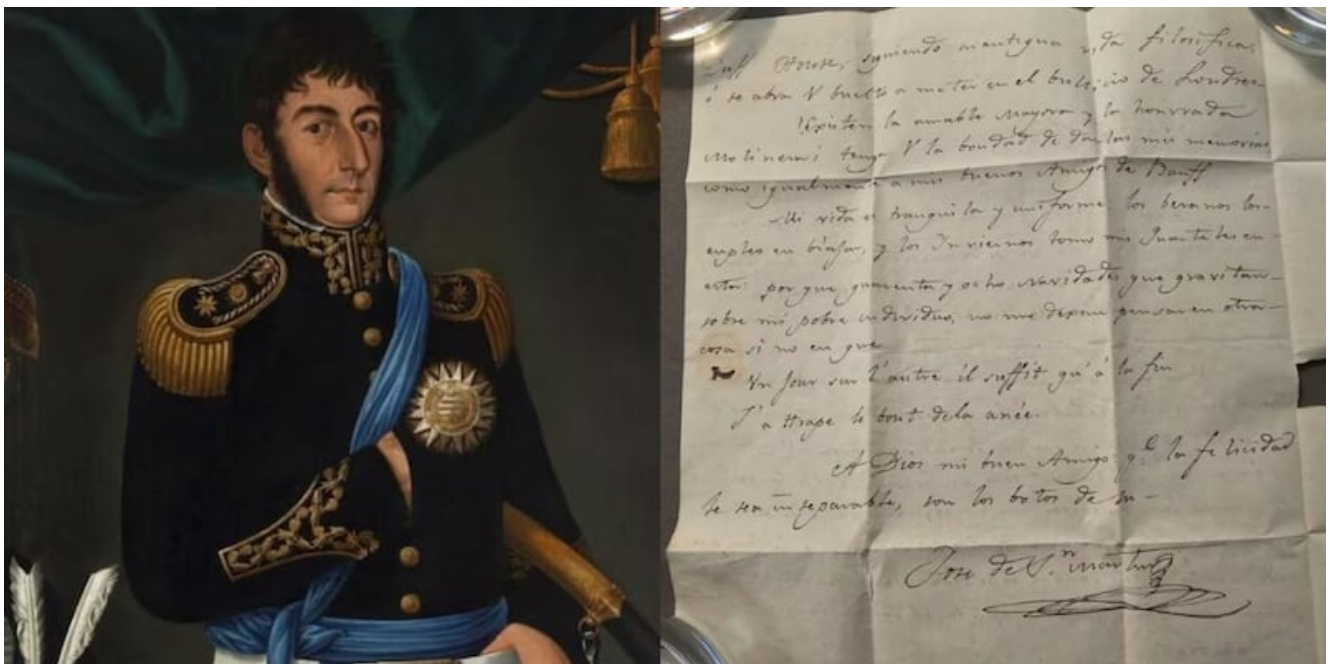 Duff House, siguiendo su antigua vida filosofica,
ó se abra V buelto a meter en el bullicio de Londres
¿Existen la amable Mayora y la honrrada
Molinera? tenga V la bondad de darlas mis memorias
como igualmente a mis buenos Amigos de Banff
Mi vida es tranquila y uniforme los beranos los
empleo en biajar, y los Inviernos tomo mis Quarteles en
esta: por que quarenta y ocho Navidades que gravitan
sobre mi pobre individuo, no me dexan pensar en otra
cosa si no en que
Un Jour sur l'autre il suffit qu'à la fin
J'attrape le bout de la anée.
A Dios mi buen Amigo q.e la felicidad
le sea inseparable, son los botos de su
Jose de S.n Martin